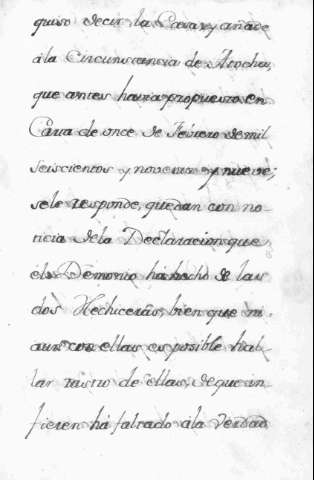 quiso decir la Casa, y añade
á la Circunstancia de Atocha,
que antes havia propuesto en
Carta de once de Febrero de mil
seiscientos y noventa y nueve;
se le responde, quedan con no-
ticia de la Declaracion que
el Demonio há hecho de las
dos Hechiceras, bien que ni
aun con ellas es posible hal-
lar rastro de ellas, de que in-
fieren há faltado a la Verdad